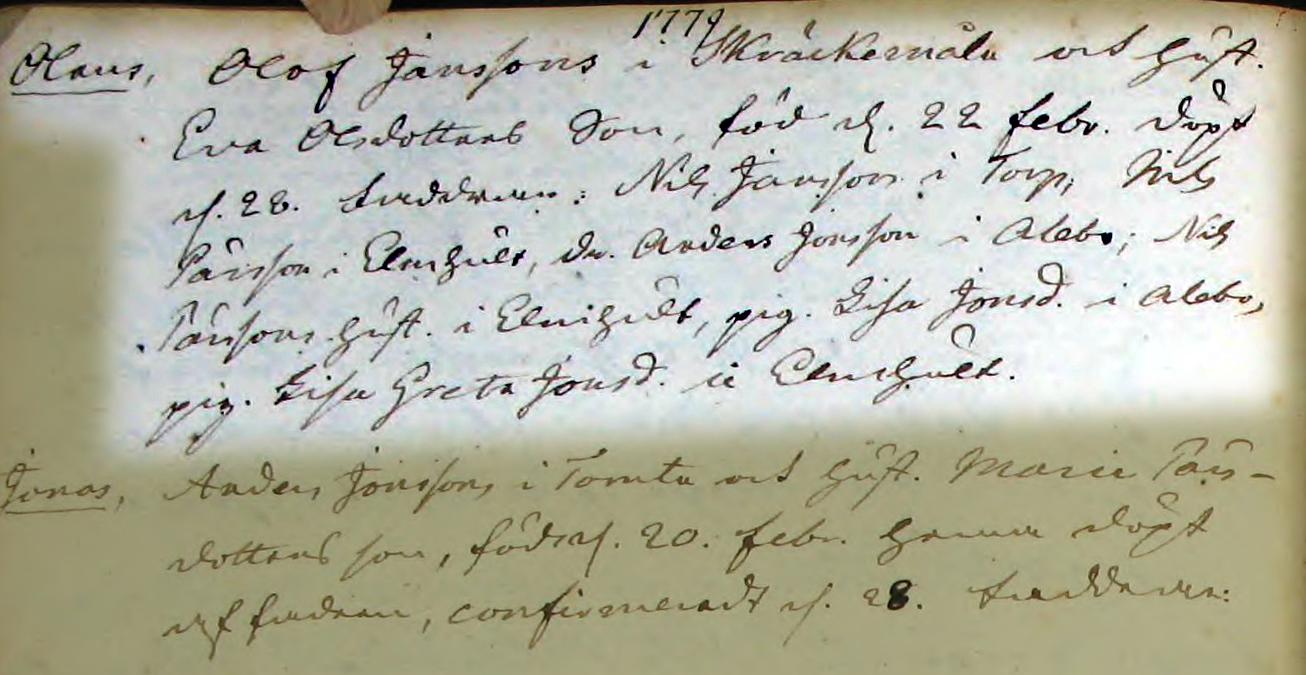 1779
Olaus, Olof Janssons i Skräckemåla och hust.
Eva Olsdotters Son, född d. 22 febr. döpt
d. 28. faddrar: Nils Jansson i Torp; Nils
Pärsson i Elmhult, dr. Anders Jonsson i Alebo; Nils
Pärssons hust. i Elmhult, pig. Lisa Jonsd. i Alebo,
pig. Lisa Greta Jonsd. i Elmhult.
Jonas, Anders Jonssons i Tomta och hust. Marie Pärs-
dotters son, född d. 20. febr. hemma döpt
af fadren, confirmeradt d. 28. faddrar: